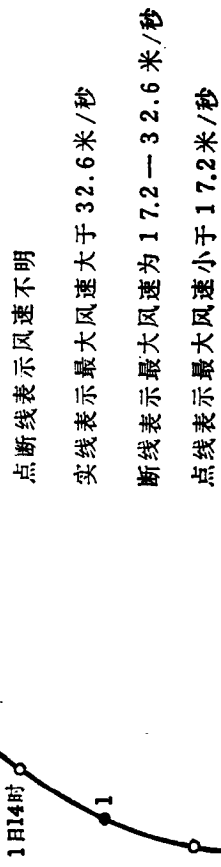 点断线表示风速不明
实线表示最大风速大于32.6米/秒
断线表示最大风速为17.2—32.6米/秒
点线表示最大风速小于17.2米/秒
1日14时
1